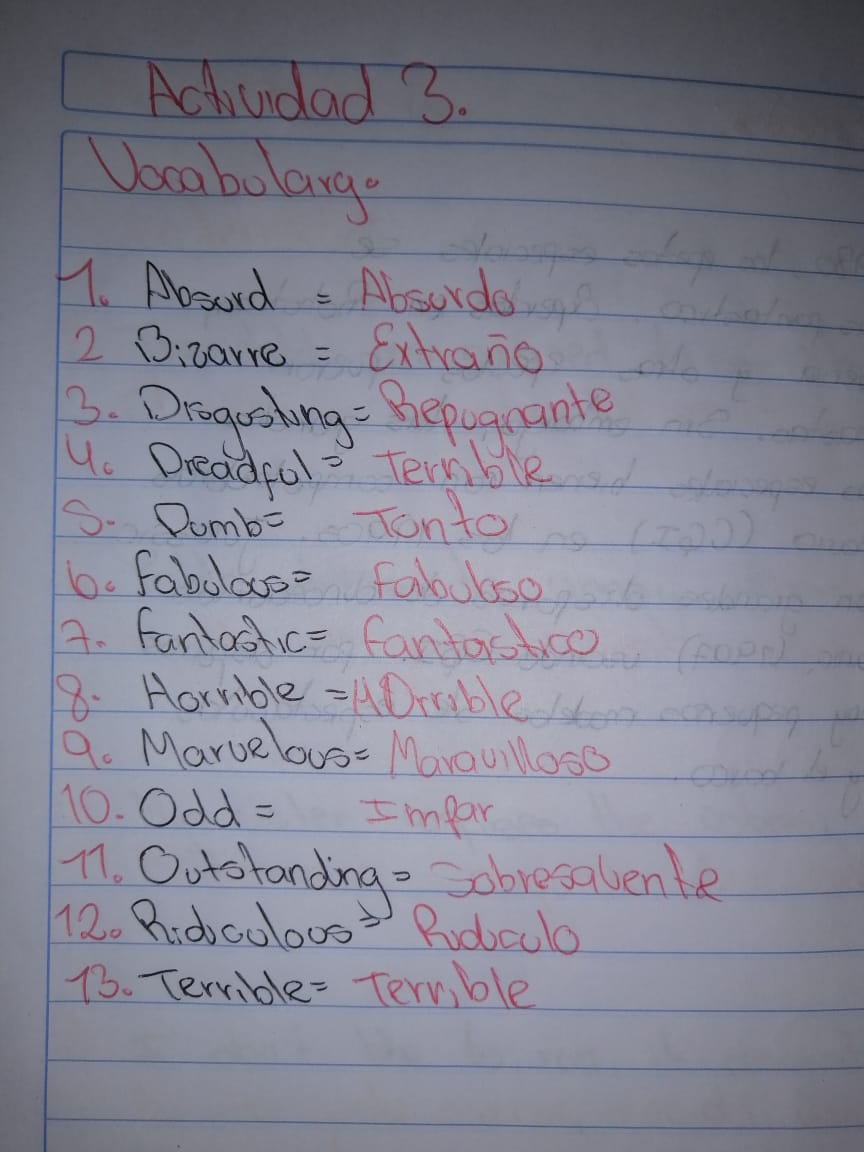 Actividad 3.
Vocabulary.
1. Absurd = Absurdo
2 Bizarre = Extraño
3. Disgusting = Repugnante
4. Dreadful = Terrible
5. Dumb = Tonto
6. Fabulous = Fabuloso
7. Fantastic = Fantastico
8. Horrible = Horrible
9. Marvelous = Maravilloso
10. Odd = Impar
11. Outstanding = Sobresaliente
12. Ridiculous = Ridiculo
13. Terrible = Terrible